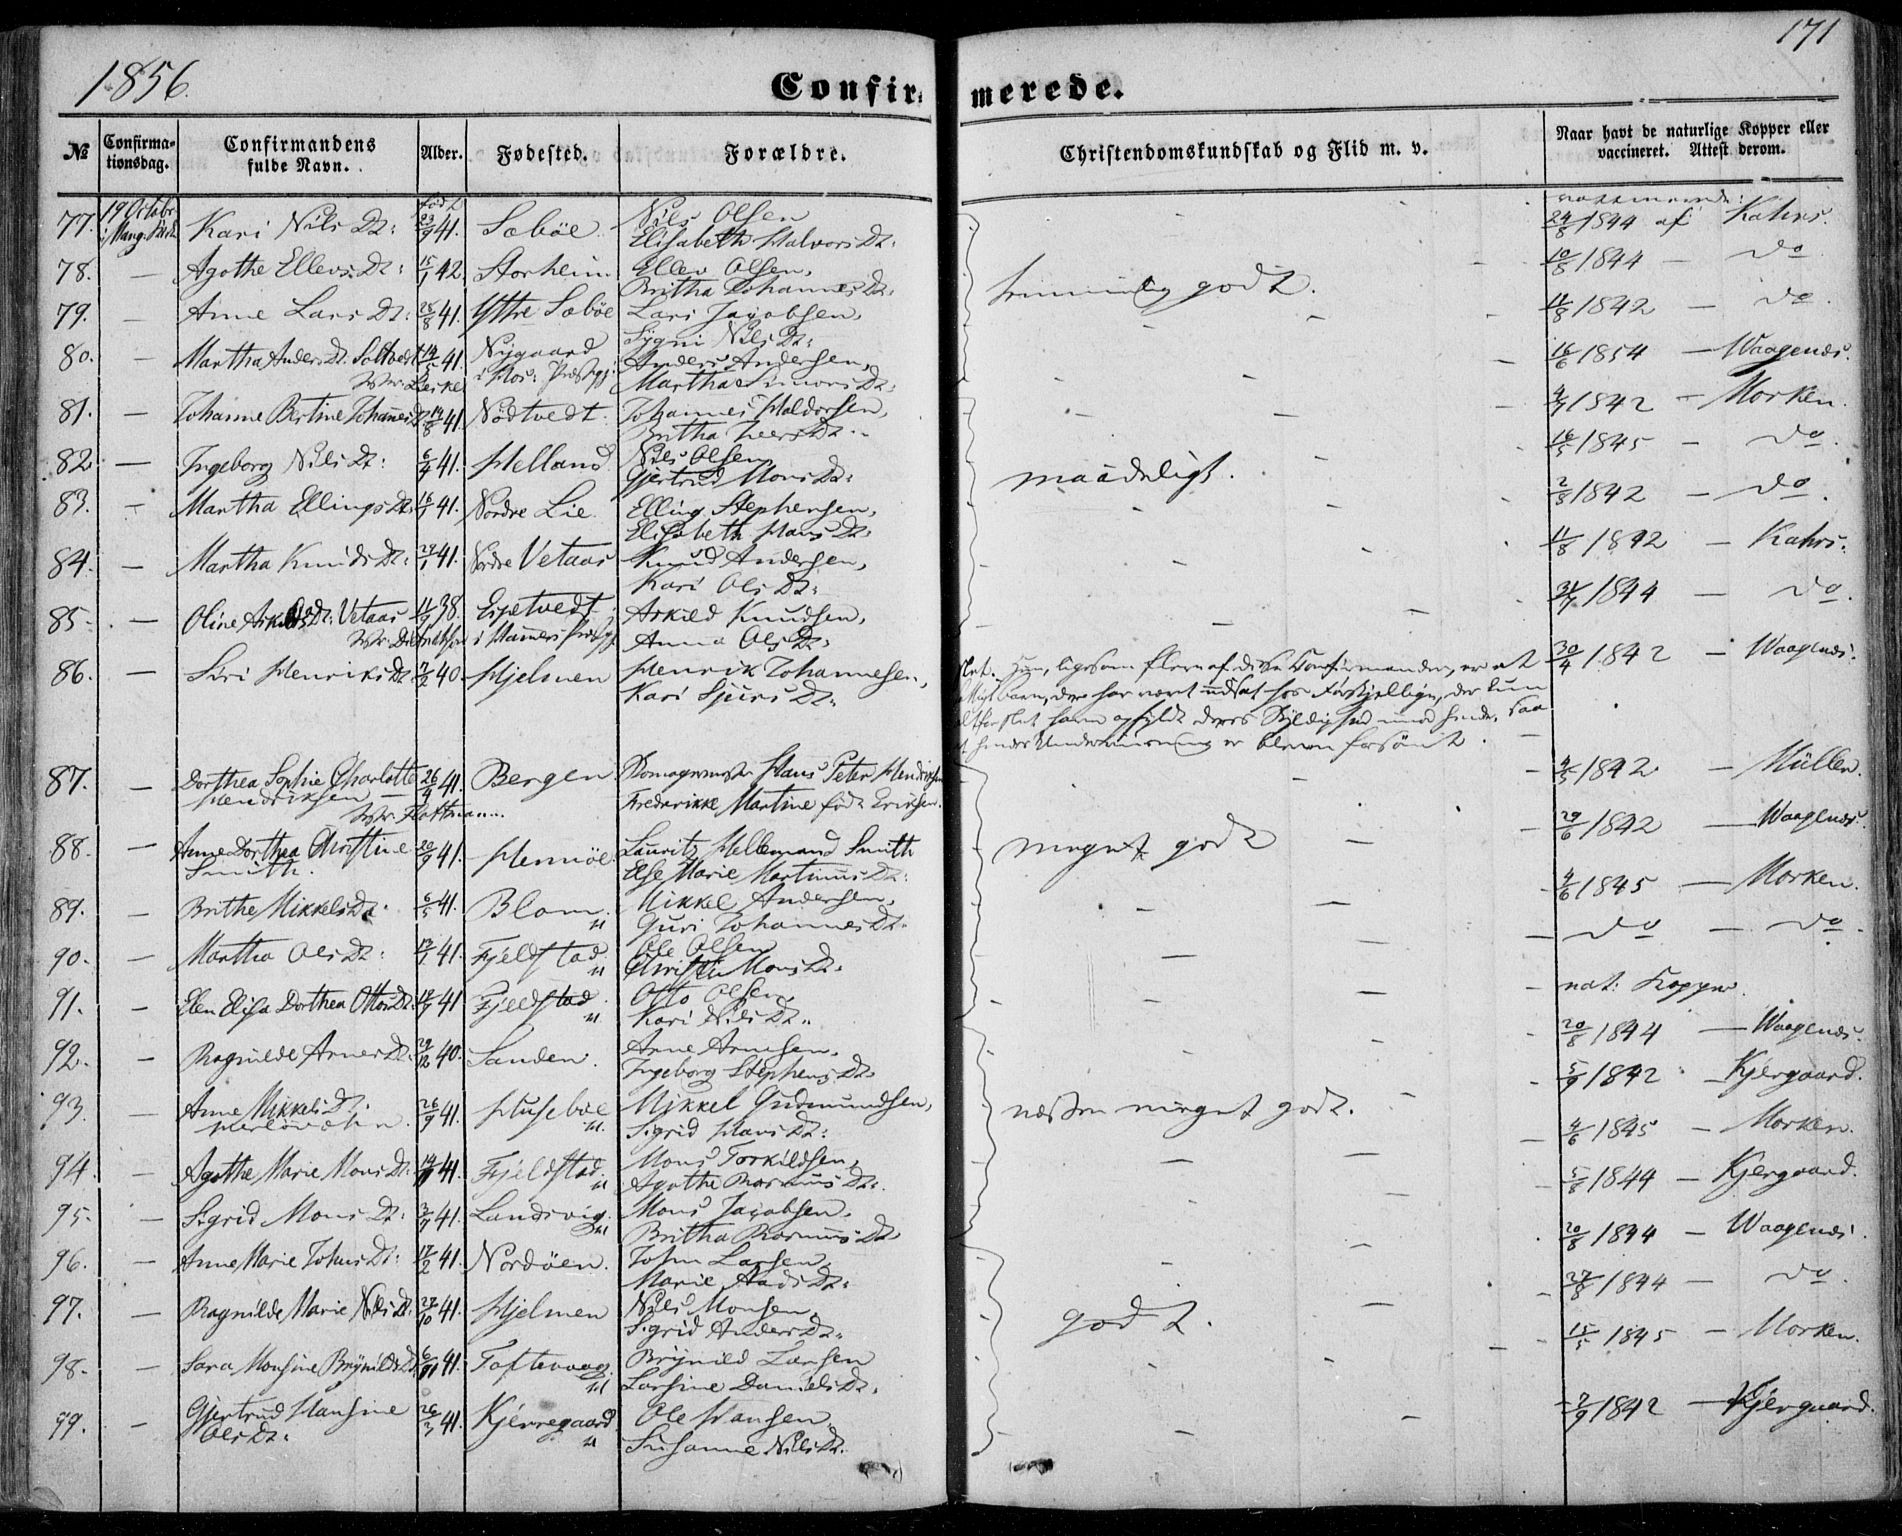 171
1856.
Confirmerede.
№ Confirmationsdag. Confirmandens fulde Navn. Alder. Fødested. Forældre. Christendomskundskab og Flid m. v. Naar havt de naturlige Kopper eller vaccineret. Attest derom.
77. 19 Octobr. Kari Nils Dt: født 23/9 41. Sæbøe. Nils Olsen Elisabeth Halvors Dt: 24/8 1844 af Kahrs.
78. — Agathe Ellevs Dt: 15/1 42. Storheim Ellev Olsen, Britha Johannes Dt: temmelig godt. 10/8 1844 — do
79. — Anne Lars Dt: 25/8 41. Yttre Sæbøe Lars Jacobsen, Sygni Nils Dt: 11/8 1842 — do.
80. — Martha Anders Dt: 14/5 41. Nygaard Anders Andersen, Martha Simons Dt: 16/6 1854 — Waagenes.
81. — Johanne Bertine Johannes Dt 19/8 41. Nødtvedt Johannes Haldorsen, Britha Ivers Dt: 1842 — Morken.
82. — Ingeborg Nils Dt: 6/4 41. Helland Nils Olsen Gjertrud Mons Dt: maadeligt. 16/5 1845 — do.
83. — Martha Ellings Dt: 16/1 41. Nordre Lie Elling Stephensen, Elisabeth Hans Dt: 1842 — do.
84. — Martha Knuds Dt: 29/1 41. Nordre Vetaas Knud Andersen, Kari Ols Dt: 11/8 1842 — Kahrs.
85. — Oline Askilds Dt: Vetaas 11/9 38. Espetvedt i Hammers Askild Knudsen, Anna Ols Dt: 1844 — do.
86. — Siri Henriks Dt: 7/2 40. Hjelmen Henrik Johannesen, Kari Sjurs Dt: 30/4 1842 — Waagenes.
Slet. Hun, ligesom flere af disse Confirmander, er et
Barn, der har været udsat hos Forskjellige, der kun
altfor slet have opfyldt deres Skyldighed imod hende, saa
at hendes Underviisning er bleven forsømt.
87. — Dorthea Sophie Charlotte Hendriksen 26/4 41. Bergen Hans Peter Hendriksen Frederikke Martine født 4/5 1842 — Müller.
88. — Anne Dorthea Christine Smith. 20/9 41. Hennøe. Lauritz Hellemand Smith Else Marie Martinus Dt: meget godt 29/6 1842 — Waagenes.
89. — Brithe Mikkels Dt. 6/5 41. Blom. Mikkel Andersen, Guri Johannes Dt. 4/6 1845 — Morken.
90. — Martha Ols Dt: 13/1 41. Fjeldstad Ole Olsen Christi Mons Dt. — do — do.
91. — Elen Elisa Dorthea Ottos Dt: 41. Fjeldstad. Otto Olsen, Kari Nils Dt. nat: Kopper.
92. — Ragnilde Arnes Dt: 29/12 40. Sanden. Arne Arnesen, Ingeborg Stephens Dt. 20/8 1844 — Waagenes.
93. — Anne Mikkels Dt: 26/9 41. Husebøe Mikkel Gudmundsen, Sigrid Hans Dt: næsten meget godt. 5/9 1842 — Kjergaard.
94. — Agathe Marie Mons Dt: 41. Fjeldstad. Mons Torkildsen, Agathe Rasmus Dt: 4/6 1845 — Morken.
95. — Sigrid Mons Dt: 41. Landsvig. Mons Jacobsen, Britha Rasmus Dt 5/8 1844 — Kjergaard.
96. — Anne Marie Johns Dt: 17/2 41. Nordøen. John Larsen, Marie Aads Dt: 20/8 1844 — Waagenes.
97. — Ragnilde Marie Nils Dt: 27/10 41. Hjelmen Nils Monsen, Sigrid Anders Dt. godt. 27/8 1844 — do.
98. — Sara Monsine Brynilds Dt 41. Toftevaag. Brynild Larsen Larsine Daniels Dt. 15/5 1845 — Morken.
99. — Gjertrud Hansine Ols Dt: 26/3 41. Kjerregaard Ole Hansen, Susanne Nils Dt. 7/9 1842 — Kjergaard.